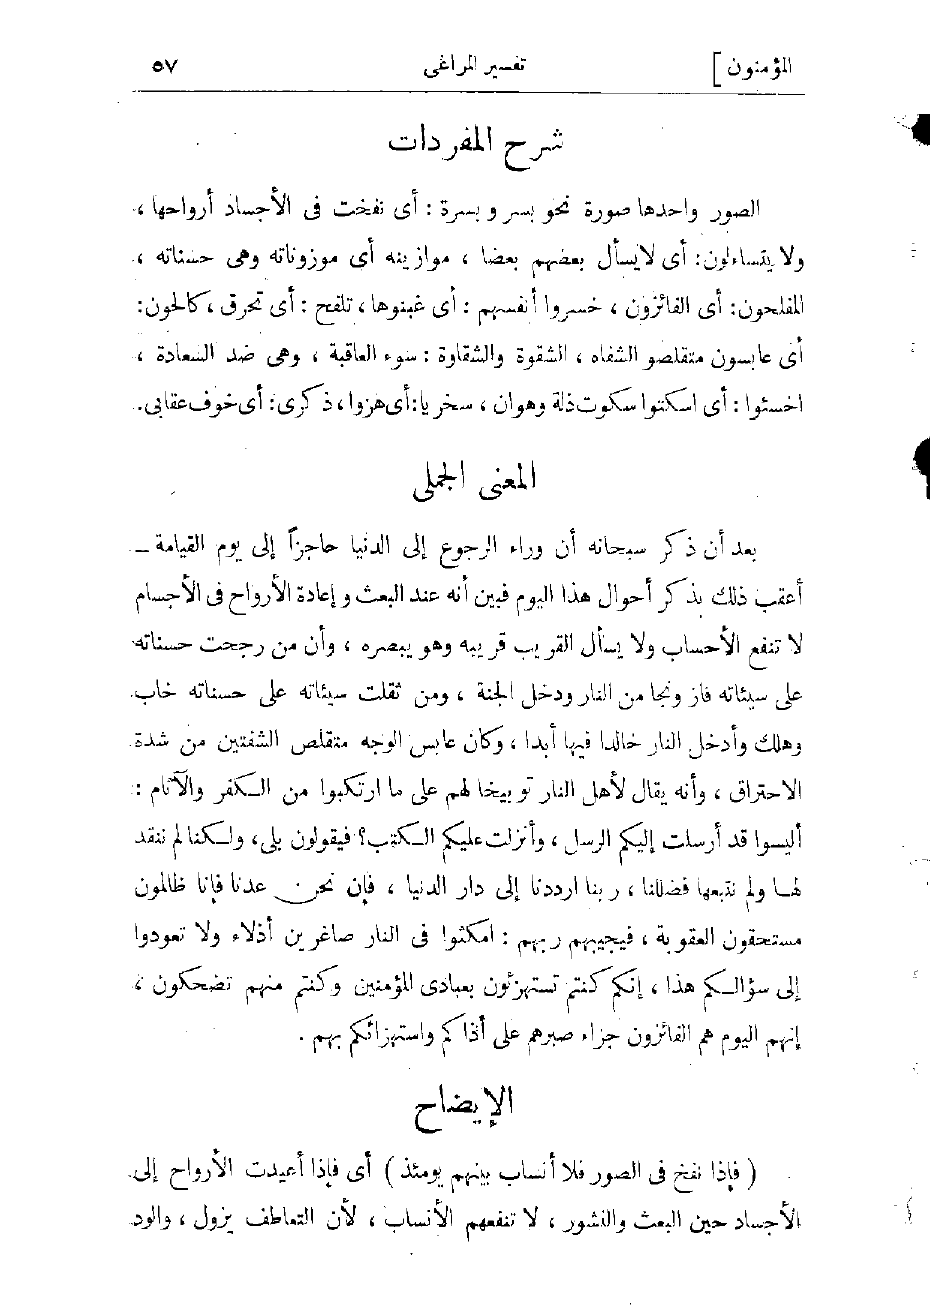 المؤمنون ] تفسير المراغى ٥٧
شرح المفردات
الصور واحدها صورة نحو بسر وبسرة : أى نفخت فى الأجساد أرواحها ،
ولا يتساءلون : أى لا يسأل بعضهم بعضا ، موازينه أى موزوناته وهى حسناته ،
المفلحون : أى الفائزون ، خسروا أنفسهم : أى غبنوها ، تلفح : أى تحرق ، كالحون :
أى عابسون متقلصو الشفاه ، الشقوة والشقاوة : سوء العاقبة ، وهى ضد السعادة ،
اخسئوا : أى اسكتوا سكوت ذلة وهوان ، سخريا : أى هزوا ، ذكرى : أى خوف عقابى .
المعنى الجملى
بعد أن ذكر سبحانه أن وراء الرجوع إلى الدنيا حاجزاً إلى يوم القيامة –
أعقب ذلك بذكر أحوال هذا اليوم فبين أنه عند البعث وإعادة الأرواح فى الأجسام
لا تنفع الأحساب ولا يسأل القريب قريبه وهو يبصره ، وأن من رجحت حسناته
على سيئاته فاز ونجا من النار ودخل الجنة ، ومن ثقلت سيئاته على حسناته خاب
وهلك وأدخل النار خالدا فيها أبدا ، وكان عابس الوجه متقلص الشفتين من شدة
الاحتراق ، وأنه يقال لأهل النار توبيخا لهم على ما ارتكبوا من الكفر والآثام :
أليسوا قد أرسلت إليكم الرسل ، وأنزلت عليكم الكتب ؟ فيقولون بلى ، ولكنا لم ننقد
لها ولم نتبعها فضللنا ، ربنا ارددنا إلى دار الدنيا ، فإن نحن عدنا فإنا ظالمون
مستحقون العقوبة ، فيجيبهم ربهم : امكثوا فى النار صاغرين أذلاء ولا تعودوا
إلى سؤالكم هذا ، إنكم كنتم تستهزئون بعبادى المؤمنين وكنتم منهم تضحكون ،
إنهم اليوم هم الفائزون جزاء صبرهم على أذاكم واستهزائكم بهم .
الإيضاح
( فإذا نفخ فى الصور فلا أنساب بينهم يومئذ ) أى فإذا أعيدت الأرواح إلى
الأجساد حين البعث والنشور ، لا تنفعهم الأنساب ، لأن التعاطف يزول ، والود